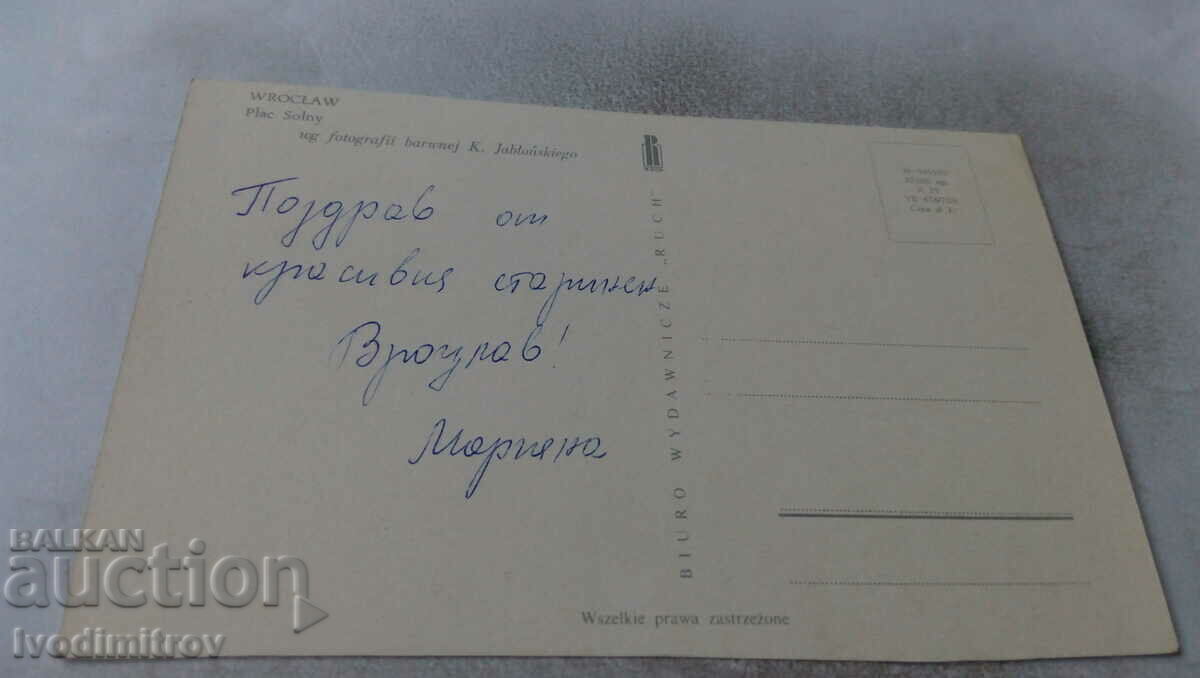 WROCŁAW
Plac Solny
wg fotografii barwnej K. Jabłońskiego
Поздрав от
красивия старинен
Вроцлав!
Марияна
BIURO WYDAWNICZE „RUCH"
Wszelkie prawa zastrzeżone
BALKAN
auction
Ivodimitrov